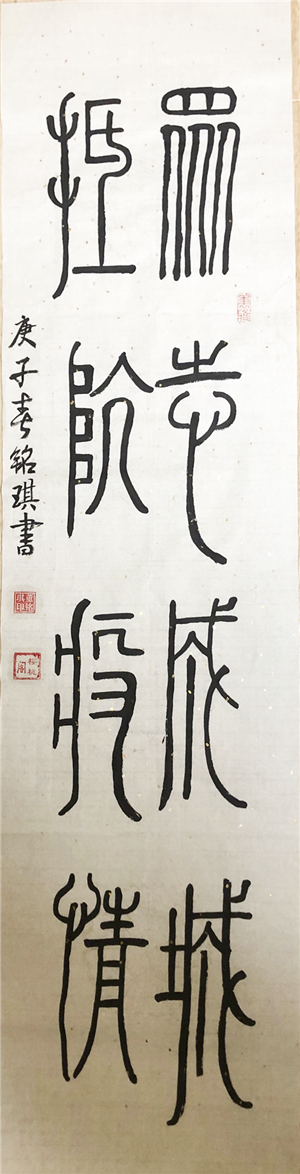 眾志成城
抵防疫情
庚子春銘琪書